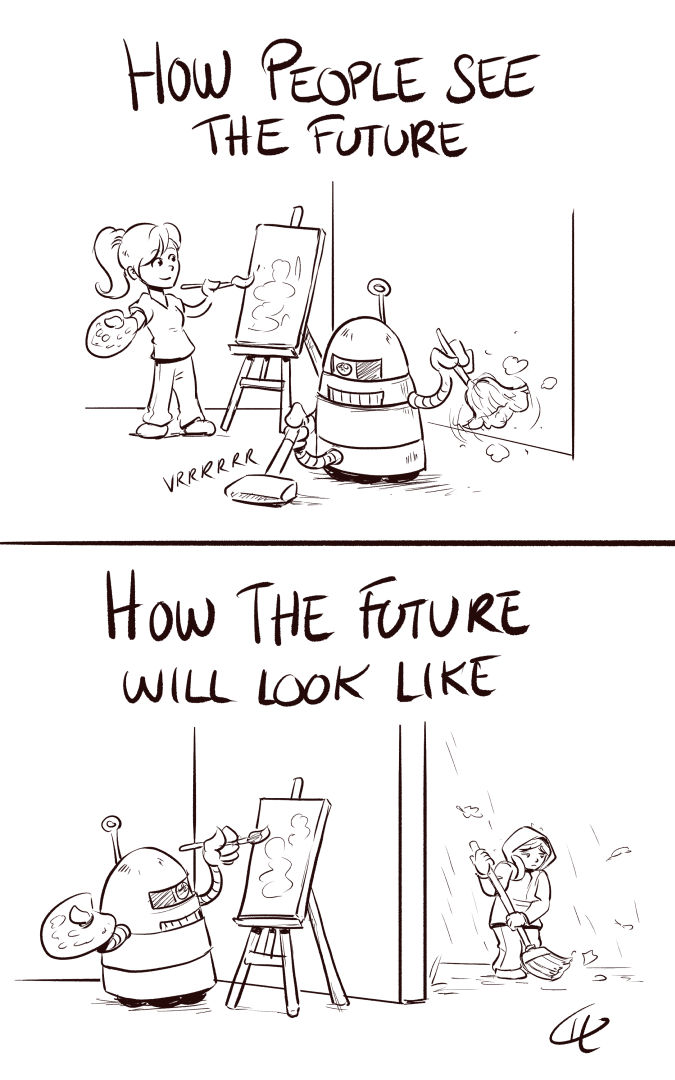 HOW PEOPLE SEE
THE FUTURE
VRRRRRR
HOW THE FUTURE
WILL LOOK LIKE